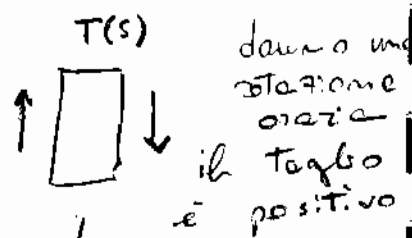 T(s)
danno una
rotazione
oraria
il Taglio
è positivo